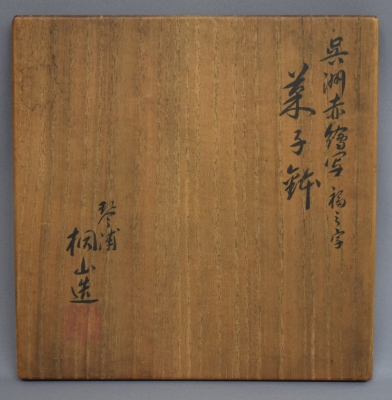 呉洲赤繪写 福之字
菓子鉢
琴浦
桐山造